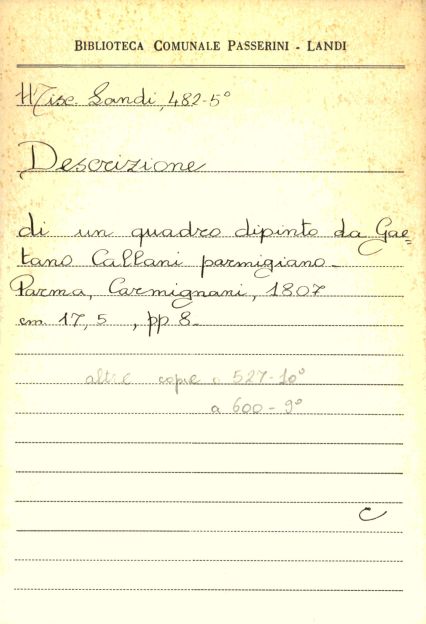 BIBLIOTECA COMUNALE PASSERINI - LANDI
Misc. Landi, 482-5°
Descrizione
di un quadro dipinto da Gae=
tano Callani parmigiano_
Parma, Carmignani, 1807
cm 17,5 , pp 8_
altre copie a 527-10°
a 600-9°
C